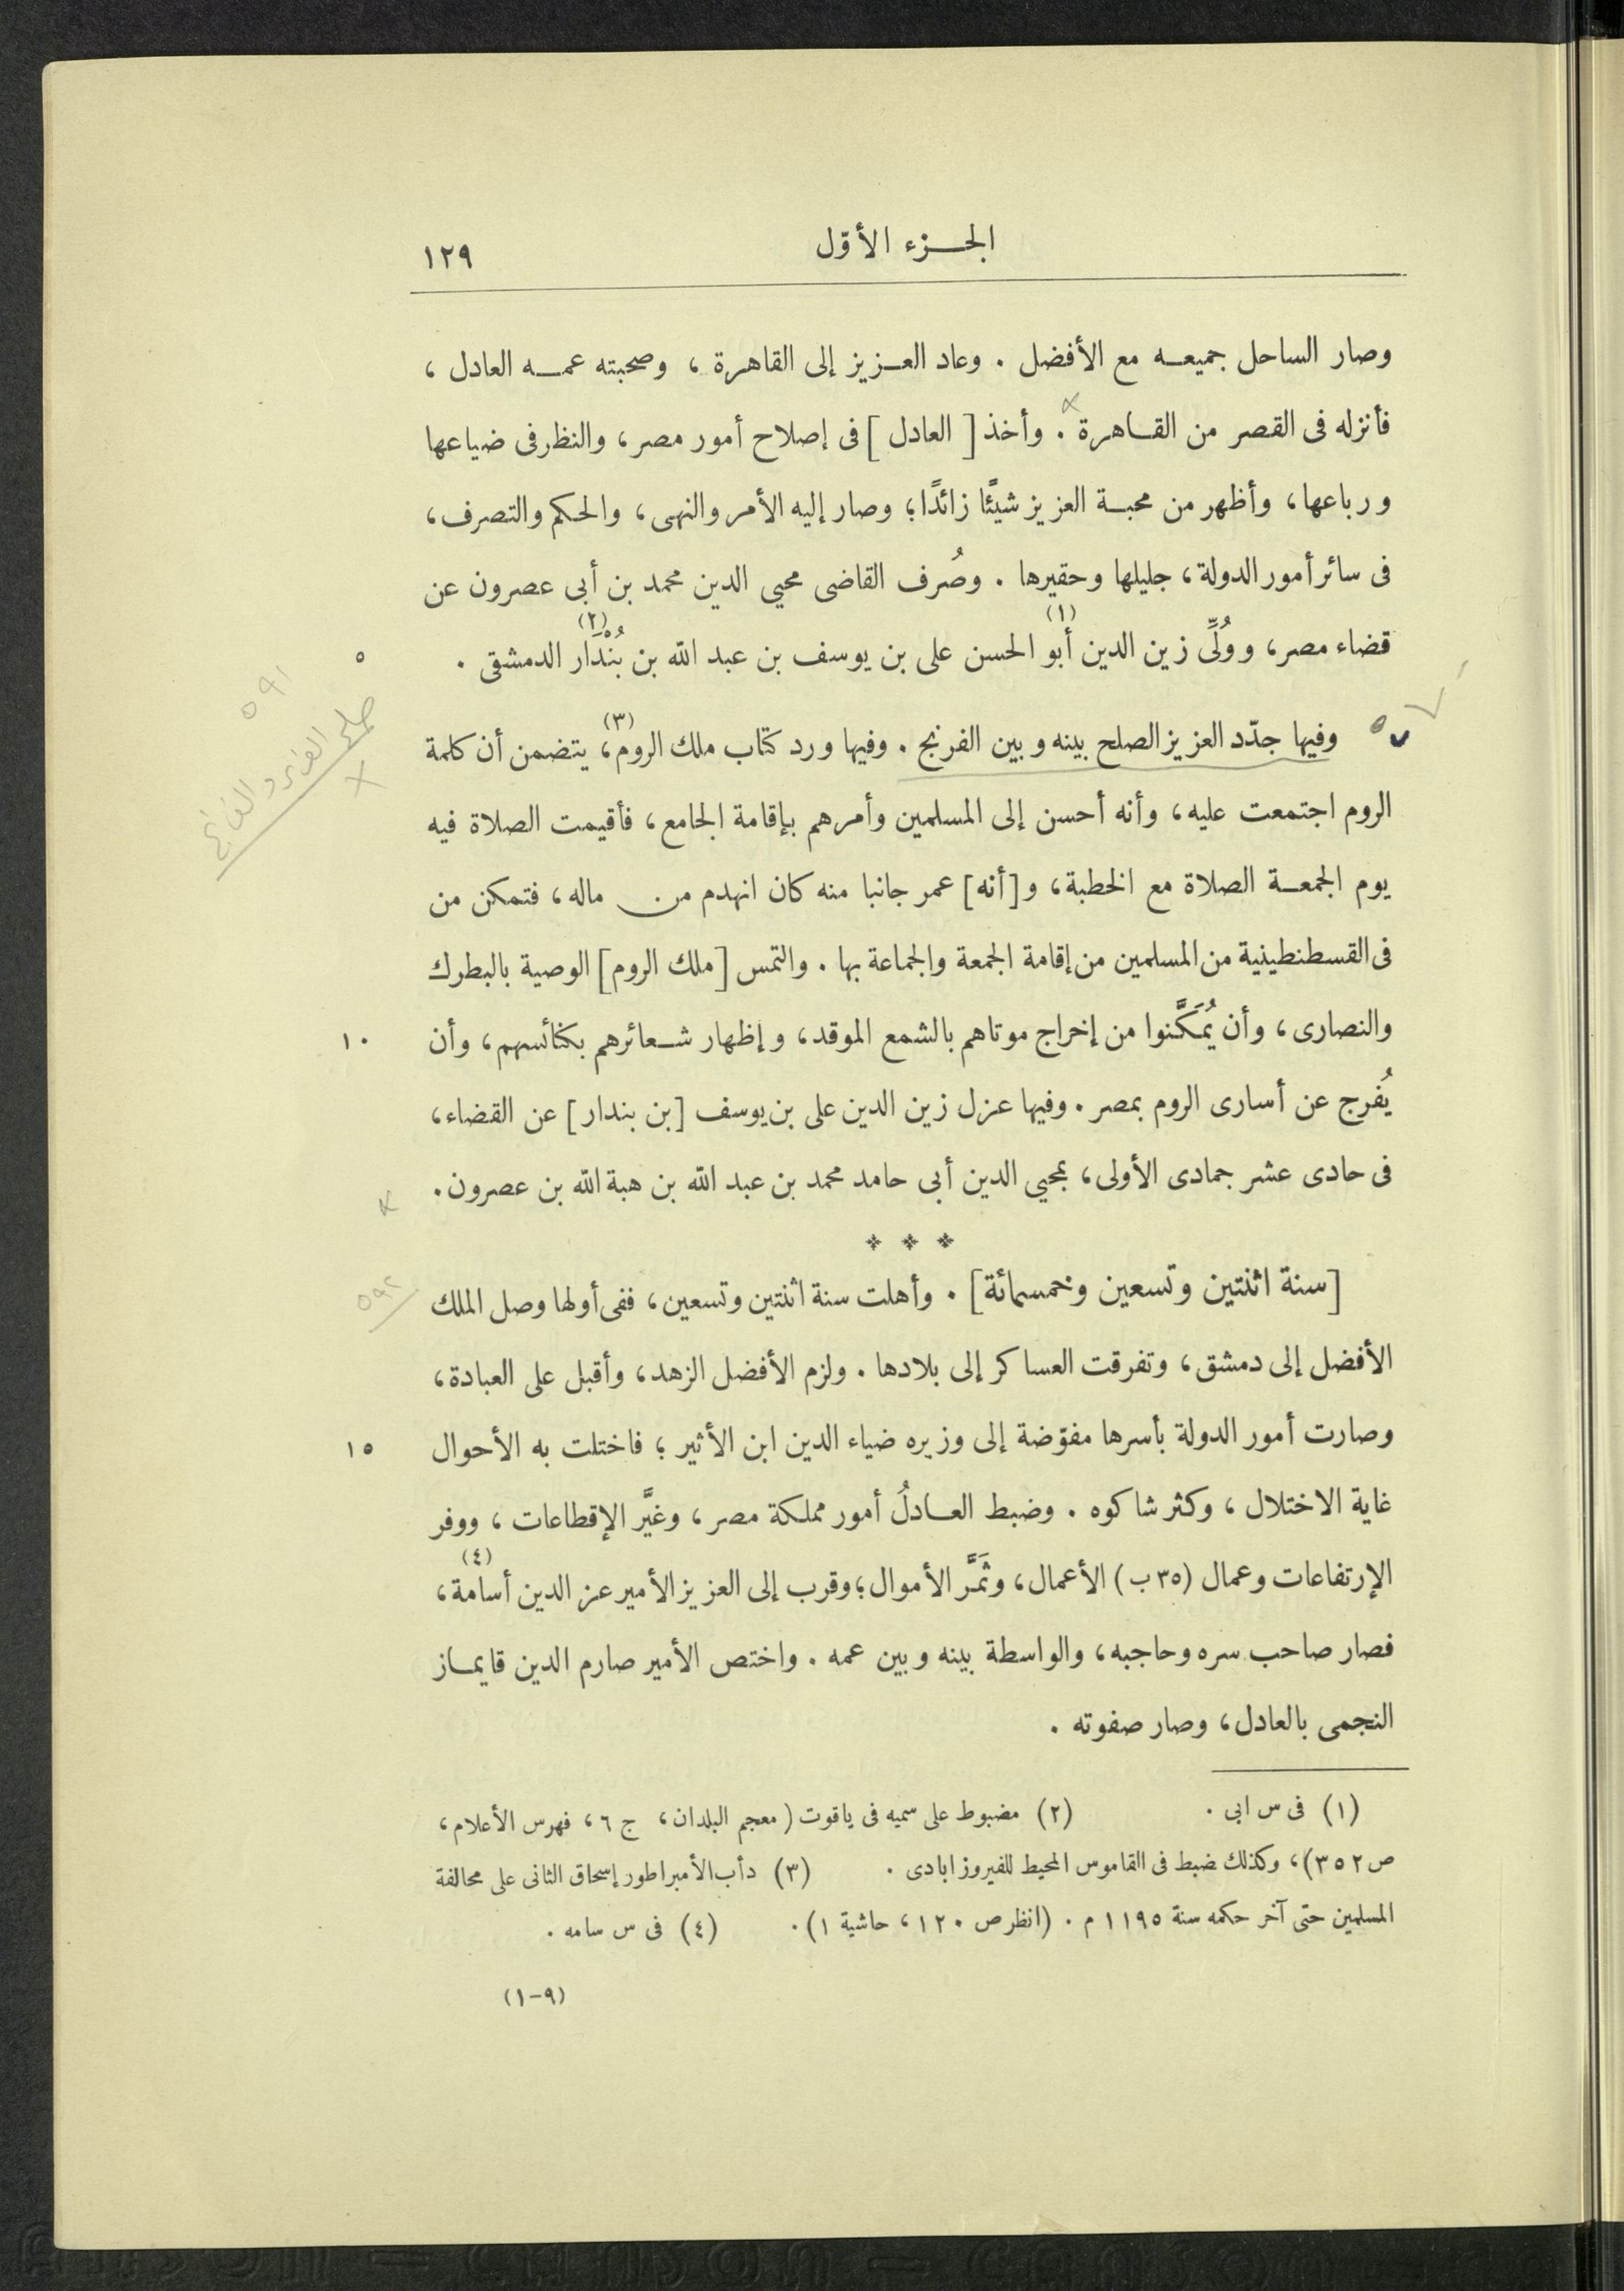 الجزء الأوّل
١٢٩
وصار الساحل جميعه مع الأفضل . وعاد العزيز إلى القاهرة ، وصحبته عمه العادل ،
فأنزله فى القصر من القاهرة . وأخذ [ العادل ] فى إصلاح أمور مصر، والنظر فى ضياعها
ورباعها، وأظهر من محبة العزيز شيئًا زائدًا؛ وصار إليه الأمر والنهى، والحكم والتصرف،
فى سائر أمور الدولة، جليلها وحقيرها . وصُرف القاضى محيى الدين محمد بن أبى عصرون عن
قضاء مصر، ووُلِّى زين الدين أبو (١) الحسن على بن يوسف بن عبد الله بن بُنْدَار (٢) الدمشقى .
٥
وفيها جدّد العزيز الصلح بينه وبين الفرنج . وفيها ورد كتاب ملك الروم (٣)، يتضمن أن كلمة
الروم اجتمعت عليه، وأنه أحسن إلى المسلمين وأمرهم بإقامة الجامع، فأقيمت الصلاة فيه
يوم الجمعة الصلاة مع الخطبة، و[أنه] عمر جانبا منه كان انهدم من ماله، فتمكن من
فى القسطنطينية من المسلمين من إقامة الجمعة والجماعة بها . والتمس [ملك الروم] الوصية بالبطرك
والنصارى، وأن يُمَكَّنوا من إخراج موتاهم بالشمع الموقد، وإظهار شعائرهم بكنائسهم، وأن
١٠
يُفرج عن أسارى الروم بمصر . وفيها عزل زين الدين على بن يوسف [بن بندار] عن القضاء،
فى حادى عشر جمادى الأولى، بمحيى الدين أبى حامد محمد بن عبد الله بن هبة الله بن عصرون.
* * *
[سنة اثنتين وتسعين وخمسمائة] . وأهلت سنة اثنتين وتسعين، ففى أولها وصل الملك
الأفضل إلى دمشق، وتفرقت العساكر إلى بلادها . ولزم الأفضل الزهد، وأقبل على العبادة،
وصارت أمور الدولة بأسرها مفوّضة إلى وزيره ضياء الدين ابن الأثير؛ فاختلت به الأحوال
١٥
غاية الاختلال، وكثر شاكوه . وضبط العادلُ أمور مملكة مصر، وغيَّر الإقطاعات، ووفر
الإرتفاعات وعمال (٣٥ ب) الأعمال، وثَمَّر الأموال؛ وقرب إلى العزيز الأمير عز الدين أسامة (٤)،
فصار صاحب سره وحاجبه، والواسطة بينه وبين عمه . واختص الأمير صارم الدين قايماز
النجمى بالعادل، وصار صفوته .
(١) فى س ابى . (٢) مضبوط على سميه فى ياقوت (معجم البلدان، ج ٦، فهرس الأعلام،
ص ٣٥٢)، وكذلك ضبط فى القاموس المحيط للفيروزابادى . (٣) دأب الأمبراطور إسحاق الثانى على محالفة
المسلمين حتى آخر حكمه سنة ١١٩٥ م . (انظر ص ١٢٠، حاشية ١). (٤) فى س سامه .
(٩-١)
٥٩١
صلح العزيز و الفرنج
٥٩٢